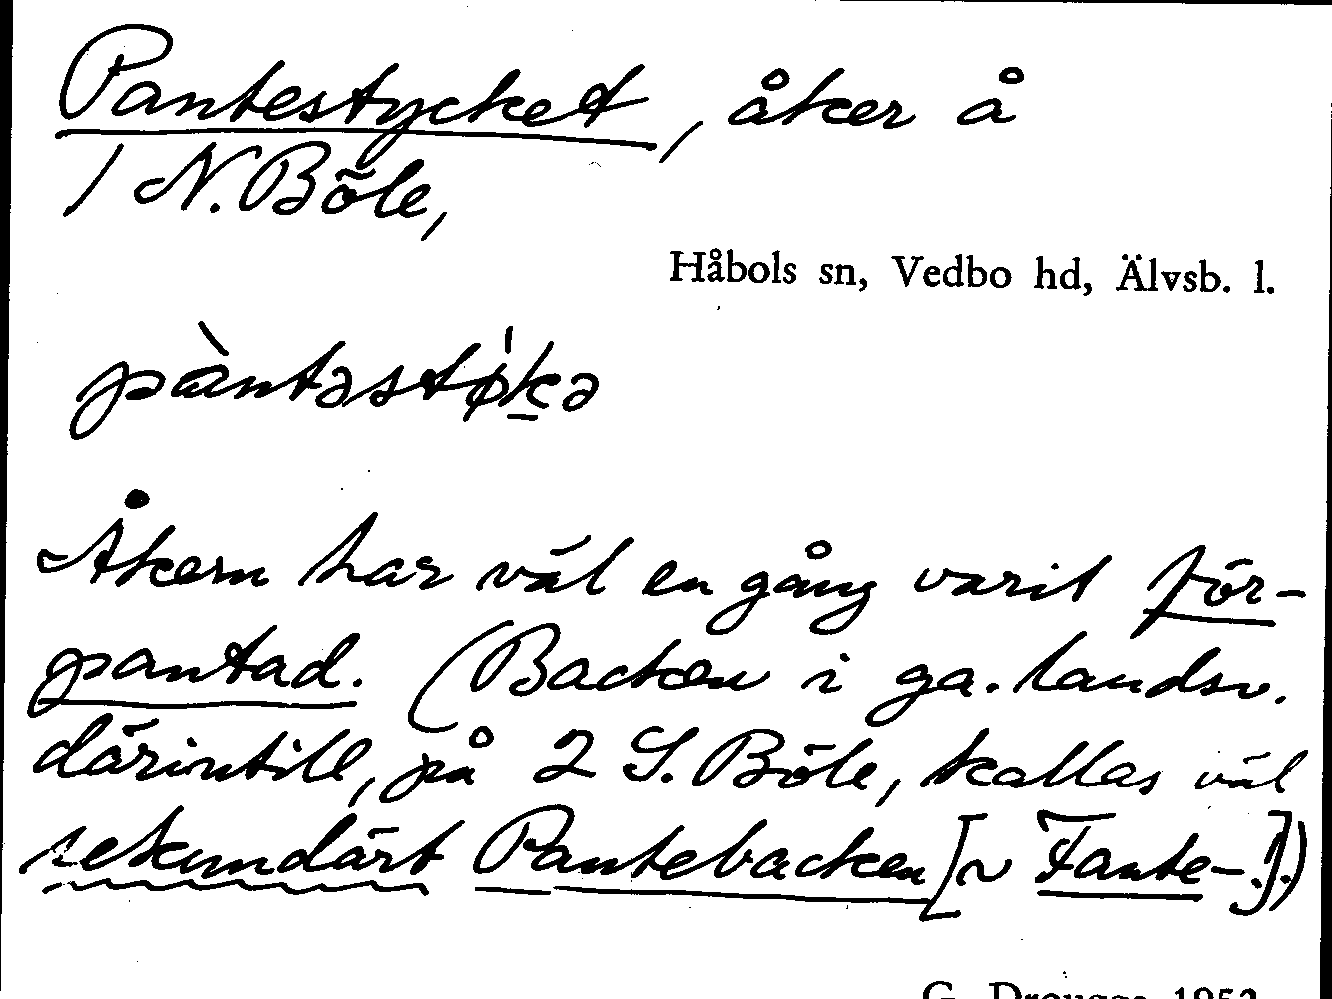 Pantestycket, åker å
1 N. Böle,
Håbols sn, Vedbo hd, Älvsb. l.
pàntəstø̍kə
Åkern har väl en gång varit för-
pantad. (Backen i ga. landsv.
därintill, på 2 S. Böle, kallas väl
sekundärt Pantebacken [~ Fante-.].)
G. Drougge 1952